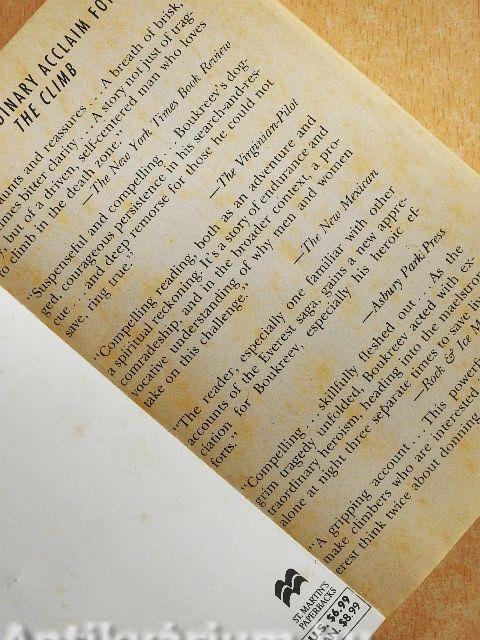 DINARY ACCLAIM FO
THE CLIMB
aunts and reassures . . . A breath of brisk,
imes bitter clarity . . . A story not just of trag-
, but of a driven, self-centered man who loves
o climb in the death zone."
—The New York Times Book Review
"Suspenseful and compelling . . . Boukreev's dog-
ged, courageous persistence in his search-and-res-
cue . . . and deep remorse for those he could not
save, ring true."
—The Virginian-Pilot
"Compelling reading, both as an adventure and
a spiritual reckoning. It's a story of endurance and
comradeship, and in the broader context, a pro-
vocative understanding of why men and women
take on this challenge."
—The New Mexican
"The reader, especially one familiar with other
accounts of the Everest saga, gains a new appre-
ciation for Boukreev, especially his heroic ef-
forts."
—Asbury Park Press
"Compelling . . . Skilfully fleshed out . . . As the
grim tragedy unfolded, Boukreev acted with ex-
traordinary heroism, heading into the maelstrom
alone at night three separate times to save li
—Rock & Ice M
"A gripping account . . . This powerf
make climbers who are interested
erest think twice about donning
ST. MARTIN'S
PAPERBACKS
S. $6.99
N. $8.99